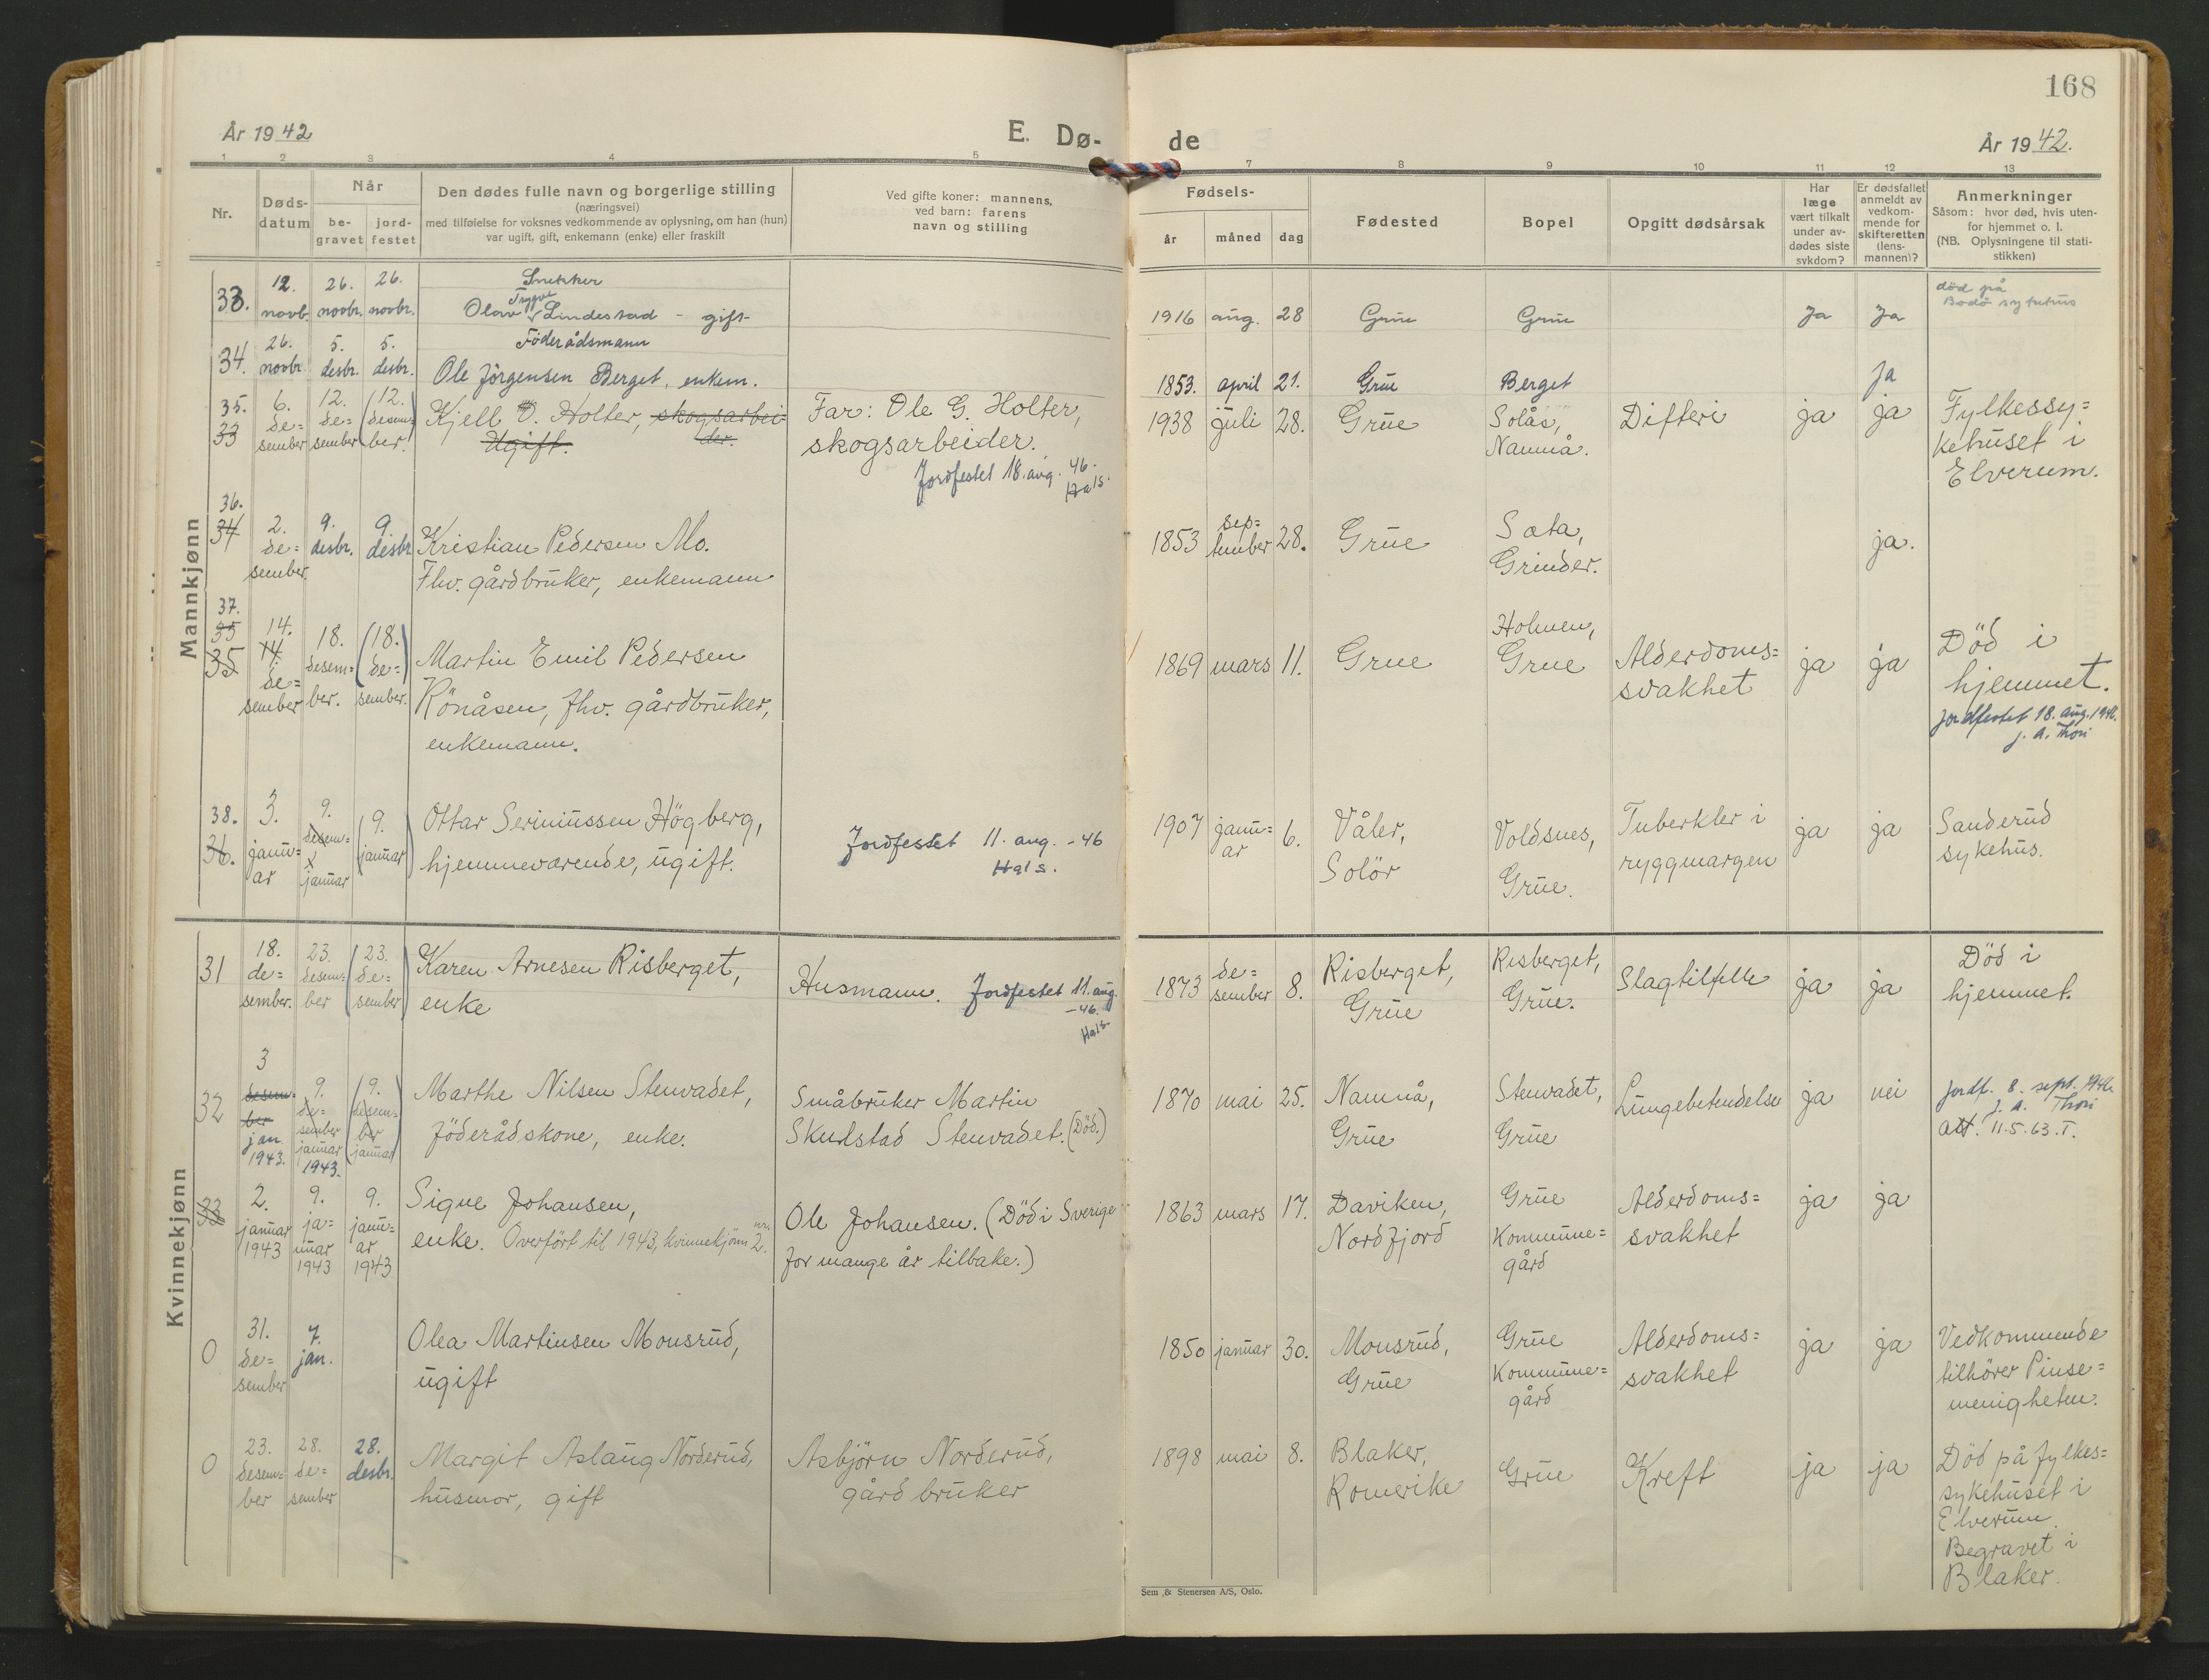 168
År 1942
E. Dø-
de
År 1942.
1 2 3 4 5 7 8 9 10 11 12 13
Nr.
Døds-
datum
Når
be-
gravet
jord-
festet
Den dødes fulle navn og borgerlige stilling
(næringsvei)
med tilføielse for voksnes vedkommende av oplysning, om han (hun)
var ugift, gift, enkemann (enke) eller fraskilt
Ved gifte koner: mannens,
ved barn: farens
navn og stilling
Fødsels-
år måned dag
Fødested
Bopel
Opgitt dødsårsak
Har
læge
vært tilkalt
under av-
dødes siste
sykdom?
Er dødsfallet
anmeldt av
vedkom-
mende for
skifteretten
(lens-
mannen)?
Anmerkninger
Såsom: hvor død, hvis uten-
for hjemmet o. l.
(NB. Oplysningene til stati-
stikken)
Mannkjønn
33.
12.
novb.
26.
novbr.
26.
novbr.
Snekker
Trygve
Olav Lindestad - gift
1916 aug. 28 Grue Grue Ja Ja
død på
Bodø sykehus
34.
26.
novbr.
5.
desbr.
5.
desbr.
Föderådsmann
Ole Jörgensen Berget, enkem.
1853. april 21. Grue Berget Ja
35.
33
6.
de=
sember
12.
de=
sember
(12.
desem=
ber.)
Kjell O. Holter, skogsarbei=
der.
Ugift.
Far: Ole G. Holter,
skogsarbeider.
Jordfestet 18. aug. 46.
Hals.
1938 juli 28. Grue
Solås,
Namnå.
Difteri ja ja
Fylkessy=
kehuset i
Elverum.
36.
34
2.
de=
sember
9.
desbr.
9.
desbr.
Kristian Pedersen Mo.
Fhv. gårdbruker, enkemann
1853
sep=
tember
28. Grue
Sæta,
Grinder.
ja.
37.
35
35
14.
14.
de=
sember
18.
desem=
ber.
(18.
de=
sember.)
Martin Emil Pedersen
Rönåsen, fhv. gårdbruker,
enkemann.
1869 mars 11. Grue
Holmen,
Grue
Alderdoms=
svakhet
ja ja
Död i
hjemmet.
Jordfestet 18. aug. 1946.
J. A. Thori
38.
36.
3.
janu=
ar
9.
desem=
januar
(9.
januar)
Ottar Seriniussen Högberg,
hjemmeværende, ugift.
Jordfestet 11. aug. -46
Hals.
1907
janu=
ar
6.
Våler,
Solör
Voldsnes,
Grue.
Tuberkler i
ryggmargen
ja ja
Sanderud
sykehus.
Kvinnekjønn
31
18.
de=
sember.
23.
desem=
ber
(23.
de=
sember)
Karen Arnesen Risberget,
enke
Husmann. Jordfestet 11. aug.
-46.
Hals
1873
de=
sember
8.
Risberget,
Grue
Risberget,
Grue.
Slagtilfelle ja ja
Död i
hjemmet.
32
3
desem=
ber
jan
1943.
9.
de=
sember
januar
1943.
(9.
desem=
ber
januar)
Marthe Nilsen Stenvadet,
föderådskone, enke.
Småbruker Martin
Skulstad Stenvadet. (Död.)
1870 mai 25.
Namnå,
Grue
Stenvadet,
Grue
Lungebetendelse ja nei
Jordf. 8. sept. 1946.
J. A. Thori
att. 11.5.63. T.
33
2.
januar
1943
9.
ja=
nuar
1943
9.
janu=
ar
1943
Signe Johansen,
enke. Overfört til 1943, kvinnekjönn nr. 2.
Ole Johansen. (Död i Sverige
for mange år tilbake.)
1863 mars 17.
Daviken,
Nordfjord
Grue
Kommune=
gård
Alderdoms=
svakhet
ja ja
0
31.
de=
sember
7.
jan.
Olea Martinsen Monsrud,
ugift
1850 januar 30.
Monsrud,
Grue
Grue
Kommune=
gård
Alderdoms=
svakhet
ja ja
Vedkommende
tilhörer Pinse=
menigheten.
0
23.
desem=
ber
28.
de=
sember
28.
desbr.
Margit Aslaug Norderud,
husmor, gift
Asbjörn Norderud,
gårdbruker
1898 mai 8.
Blaker,
Romerike
Grue Kreft ja ja
Död på fylkes=
sykehuset i
Elverum.
Begravet i
Blaker.
Sem & Stenersen A/S, Oslo.